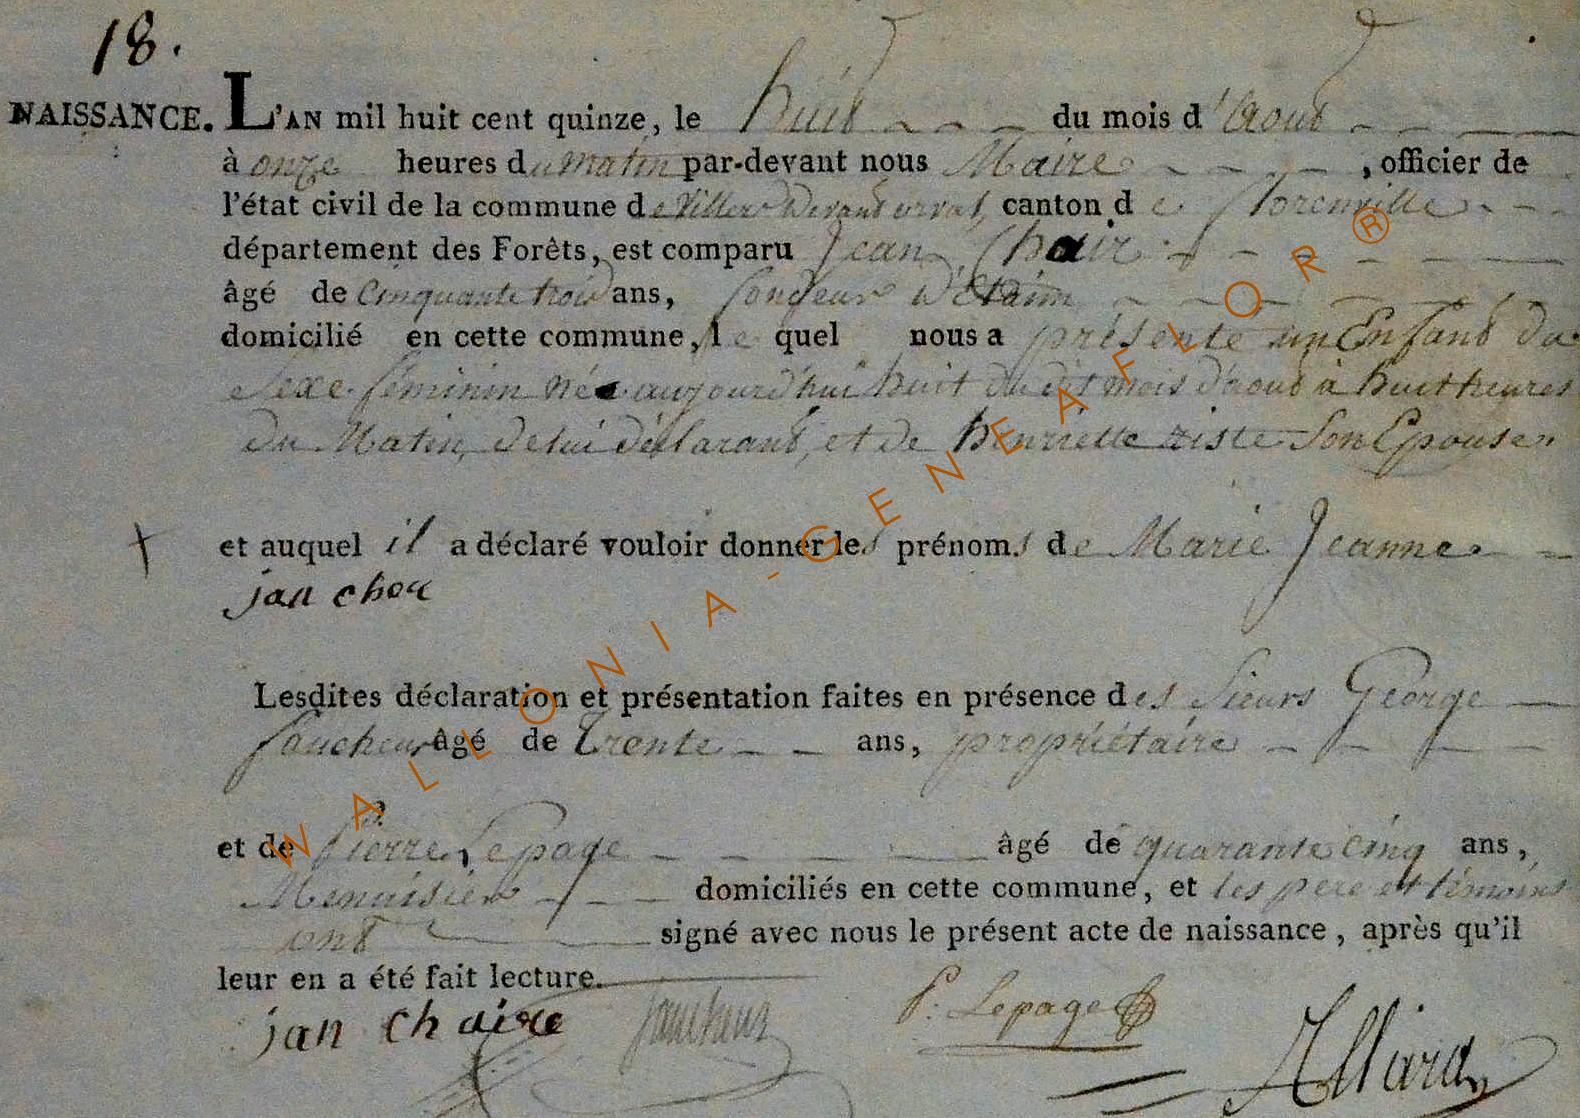 18.
NAISSANCE. L'AN mil huit cent quinze, le huit du mois d'Aout
à onze heures du matin par-devant nous Maire , officier de
l'état civil de la commune de Villers devant orval, canton de florenville
département des Forêts, est comparu Jean Chair
âgé de Cinquante trois ans, fondeur d'Etaim
domicilié en cette commune, le quel nous a présenté un Enfant du
sexe féminin née aujourd'hui huit du dit mois d'aout à huit heures
du Matin, de lui déclarant, et de henriette ziste Son Epouse
et auquel il a déclaré vouloir donner les prénoms de Marie Jeanne
jan chou
Lesdites déclaration et présentation faites en présence des Sieurs George
faucheur âgé de Trente ans, propriétaire
et de Pierre Lepage âgé de quarante cinq ans,
Menuisier domiciliés en cette commune, et les père et témoins
ont signé avec nous le présent acte de naissance, après qu'il
leur en a été fait lecture.
jan chaire faucheur P. Lepage Allard
WALLONIA-GENEAFLOR®